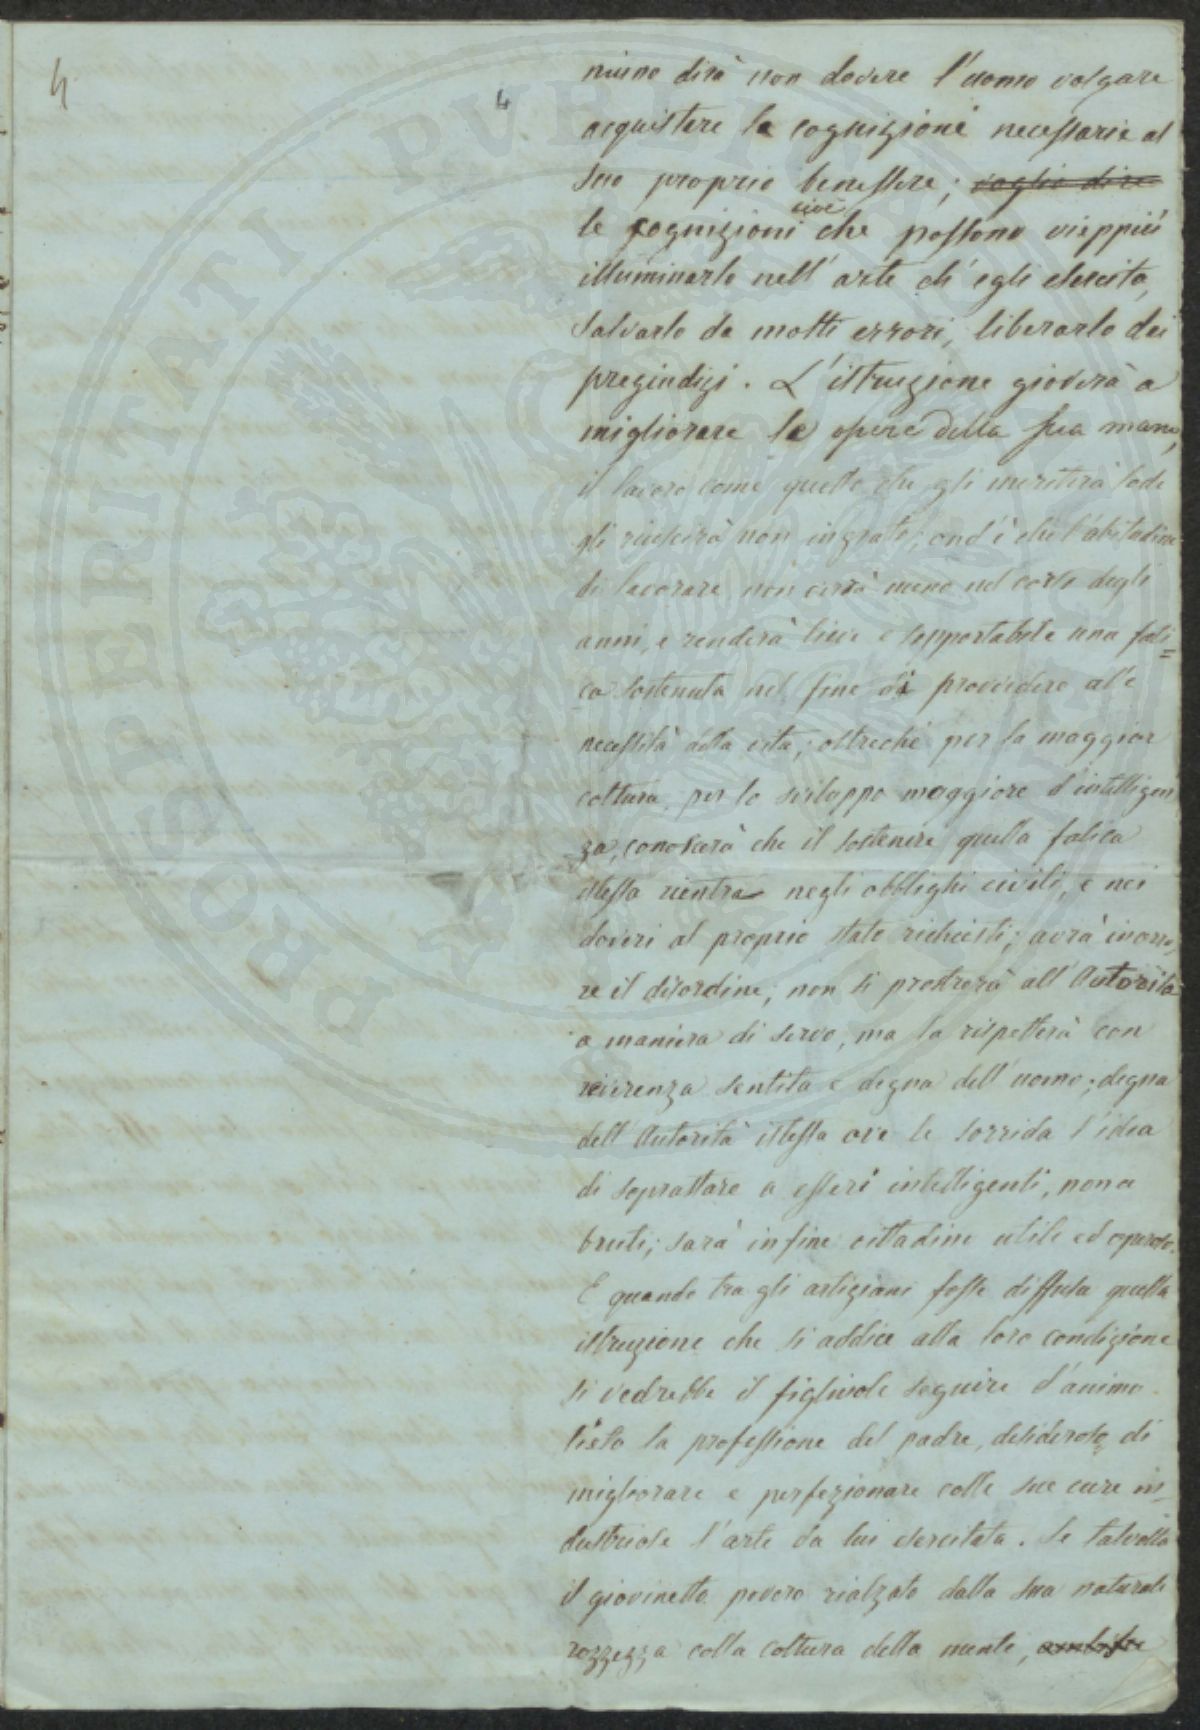 4
4
niuno dirà non dovere l'uomo volgare
acquistare le cognizioni necessarie al
suo proprio benessere; voglio dire
le cognizioni cioè che possono vieppiù
illuminarlo nell'arte ch'egli esercita,
salvarlo da molti errori, liberarlo dei
pregiudizi. L'istruzione gioverà a
migliorare le opere della sua mano,
il lavoro come quello che gli meriterà lode
gli riuscirà non ingrato; ond'è che l'abitudine
di lavorare non verrà meno nel corso degli
anni, e renderà lieve e sopportabile una fati=
ca sostenuta nel fine di provvedere alle
necessità della vita; oltreché per la maggior
coltura, per lo sviluppo maggiore d'intelligen
za, conoscerà che il sostenere quella fatica
stessa rientra negli obblighi civili, e nei
doveri al proprio stato richiesti; avrà in orro
re il disordine; non si prostrerà all'Autorità
a maniera di servo, ma la rispetterà con
riverenza sentita e degna dell'uomo; degna
dell'Autorità istessa ove le sorrida l'idea
di soprastare a esseri intelligenti, non a
bruti; sarà infine cittadino utile ed operoso.
E quando tra gli artigiani fosse diffusa quella
istruzione che si addice alla loro condizione
si vedrebbe il figliuolo seguire d'animo
lieto la professione del padre, desideroso di
migliorare e perfezionare colle sue cure in=
dustriose l'arte da lui esercitata. Se talvolta
il giovinetto povero rialzato dalla sua naturale
rozzezza colla coltura della mente,
PROSPERITATI PVBLICAE